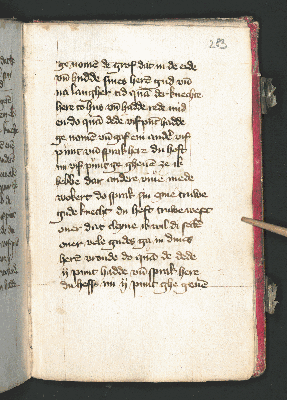 283
ge nomē de grof dat in de erde
vñ hudde sines herē gud vñ
na langher tid quā der knechte
here to hus vñ hadde rede mid
en do quā dede vif pūt hadde
ge nomē vñ gaf em ander vif
punt vñ sprak here du hest
mi vif punt ge gheuē ze ik
hebbe dar andere viue mede
woruē do sprak sin here truwe
gude knecht du hest truwe west
ouer dat cleyne ik wil di settē
ouer vele gudes ga in dines
herē vroude do quā de dede
ij punt hadde vñ sprak here
du hefst mi ij punt ghe geuē